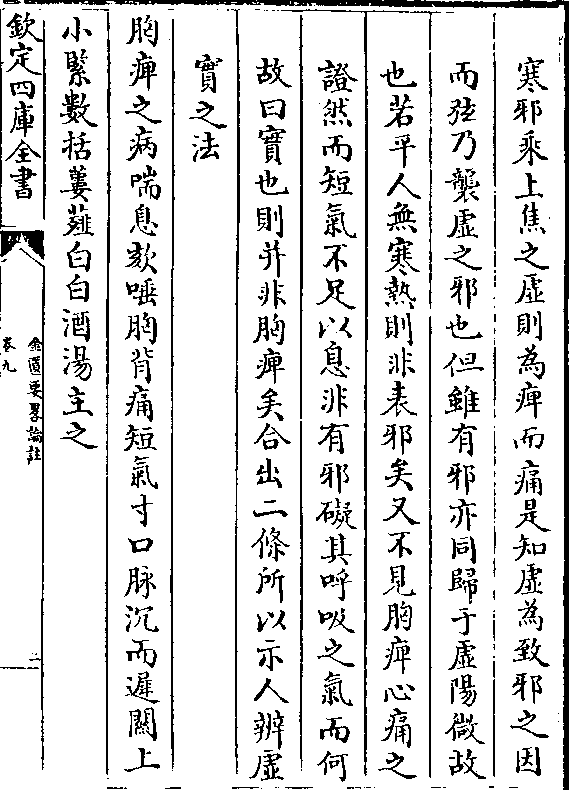 寒邪乘上焦之虛則為痺而痛是知虛為致邪之因
而弦乃襲虛之邪也但雖有邪亦同歸于虛陽微故
也若平人無寒熱則非表邪矣又不見胸痺心痛之
證然而短氣不足以息非有邪礙其呼吸之氣而何
故曰實也則并非胸痺矣合出二條所以示人辨虛
實之法
胸痺之病喘息欬唾胸背痛短氣寸口脉沉而遲關上
小緊數括蔞薤白白酒湯主之
欽定四庫全書
金匱要畧論註
卷九
二